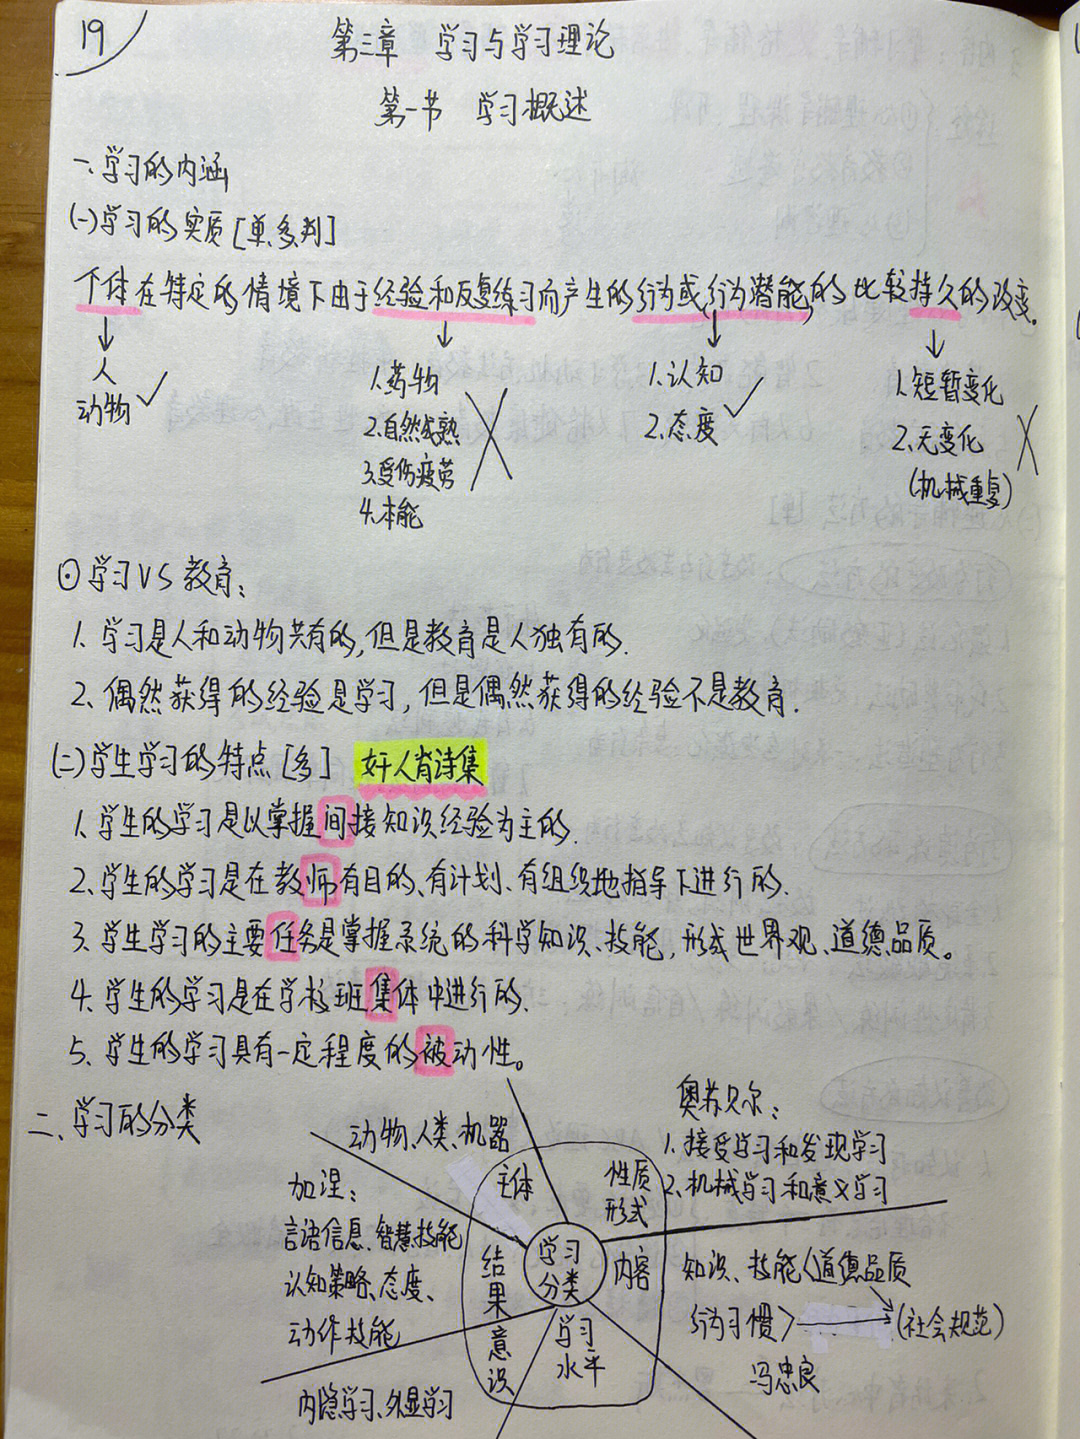 19
第三章 学习与学习理论
第一节 学习概述
一、学习的内涵
(一)学习的实质[单、多、判]
个体在特定的情境下由于经验和反复练习而产生的行为或行为潜能的比较持久的改变。
↓ ↓ ↓ ↓
人
动物 ✓
1.药物
2.自然成熟
3.受伤疲劳
4.本能
1.认知
2.态度 ✓
1.短暂变化
2.无变化
(机械重复)
⊙学习VS教育:
1. 学习是人和动物共有的,但是教育是人独有的.
2. 偶然获得的经验是学习,但是偶然获得的经验不是教育.
(二)学生学习的特点[多] 奸人背诗集
1.学生的学习是以掌握间接知识经验为主的.
2、学生的学习是在教师有目的、有计划、有组织地指导下进行的.
3、学生学习的主要任务是掌握系统的科学知识、技能,形成世界观、道德品质。
4.学生的学习是在学校班集体中进行的.
5、学生的学习具有一定程度的被动性。
二、学习的分类
学习
分类
主体
动物、人类、机器
性质
形式
奥苏贝尔:
1.接受学习和发现学习
2.机械学习和意义学习
内容
知识、技能<道德品质
行为习惯> → (社会规范)
冯忠良
学习
水平
意识
内隐学习、外显学习
结果
加涅:
言语信息、智慧技能
认知策略、态度、
动作技能